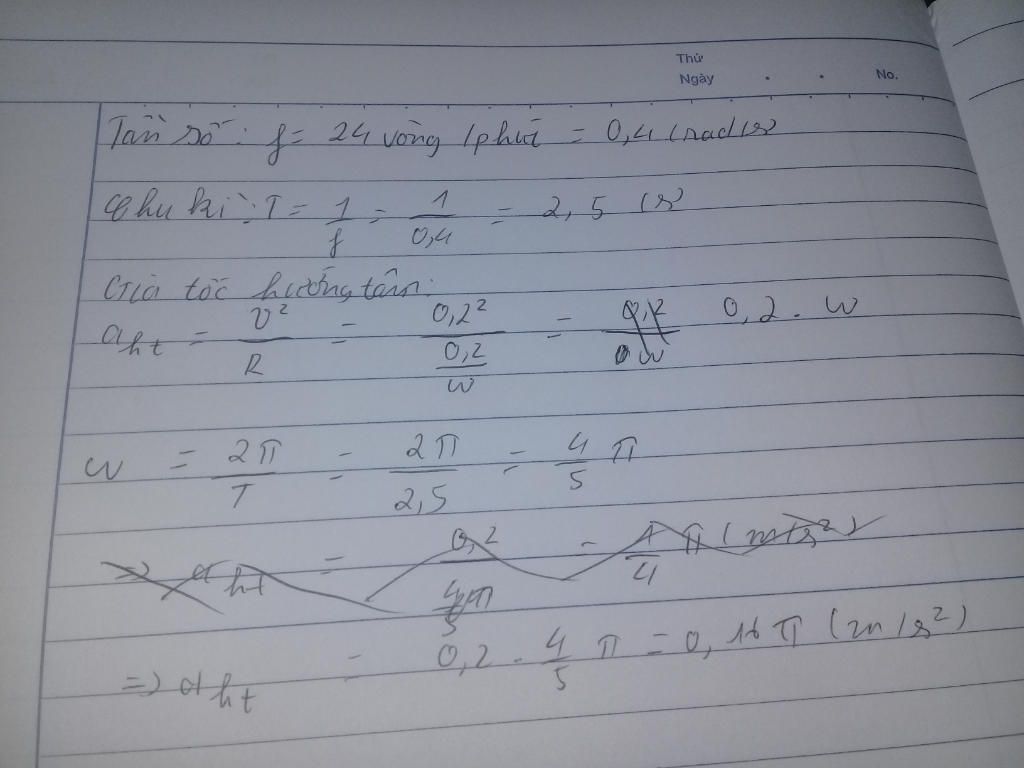 Thứ
Ngày . . No.
Tần số: f = 24 vòng / phút = 0,4 (rad/s)
Chu kì: T = 1/f = 1/0,4 = 2,5 (s)
Gia tốc hướng tâm:
a_ht = v²/R = 0,2²/(0,2/w) = 0,2 . w
w = 2π/T = 2π/2,5 = 4/5 π
=> a_ht = 0,2/(4π/5) = 1/4 π (m/s²)
=> a_ht = 0,2 . 4/5 π = 0,16 π (m/s²)